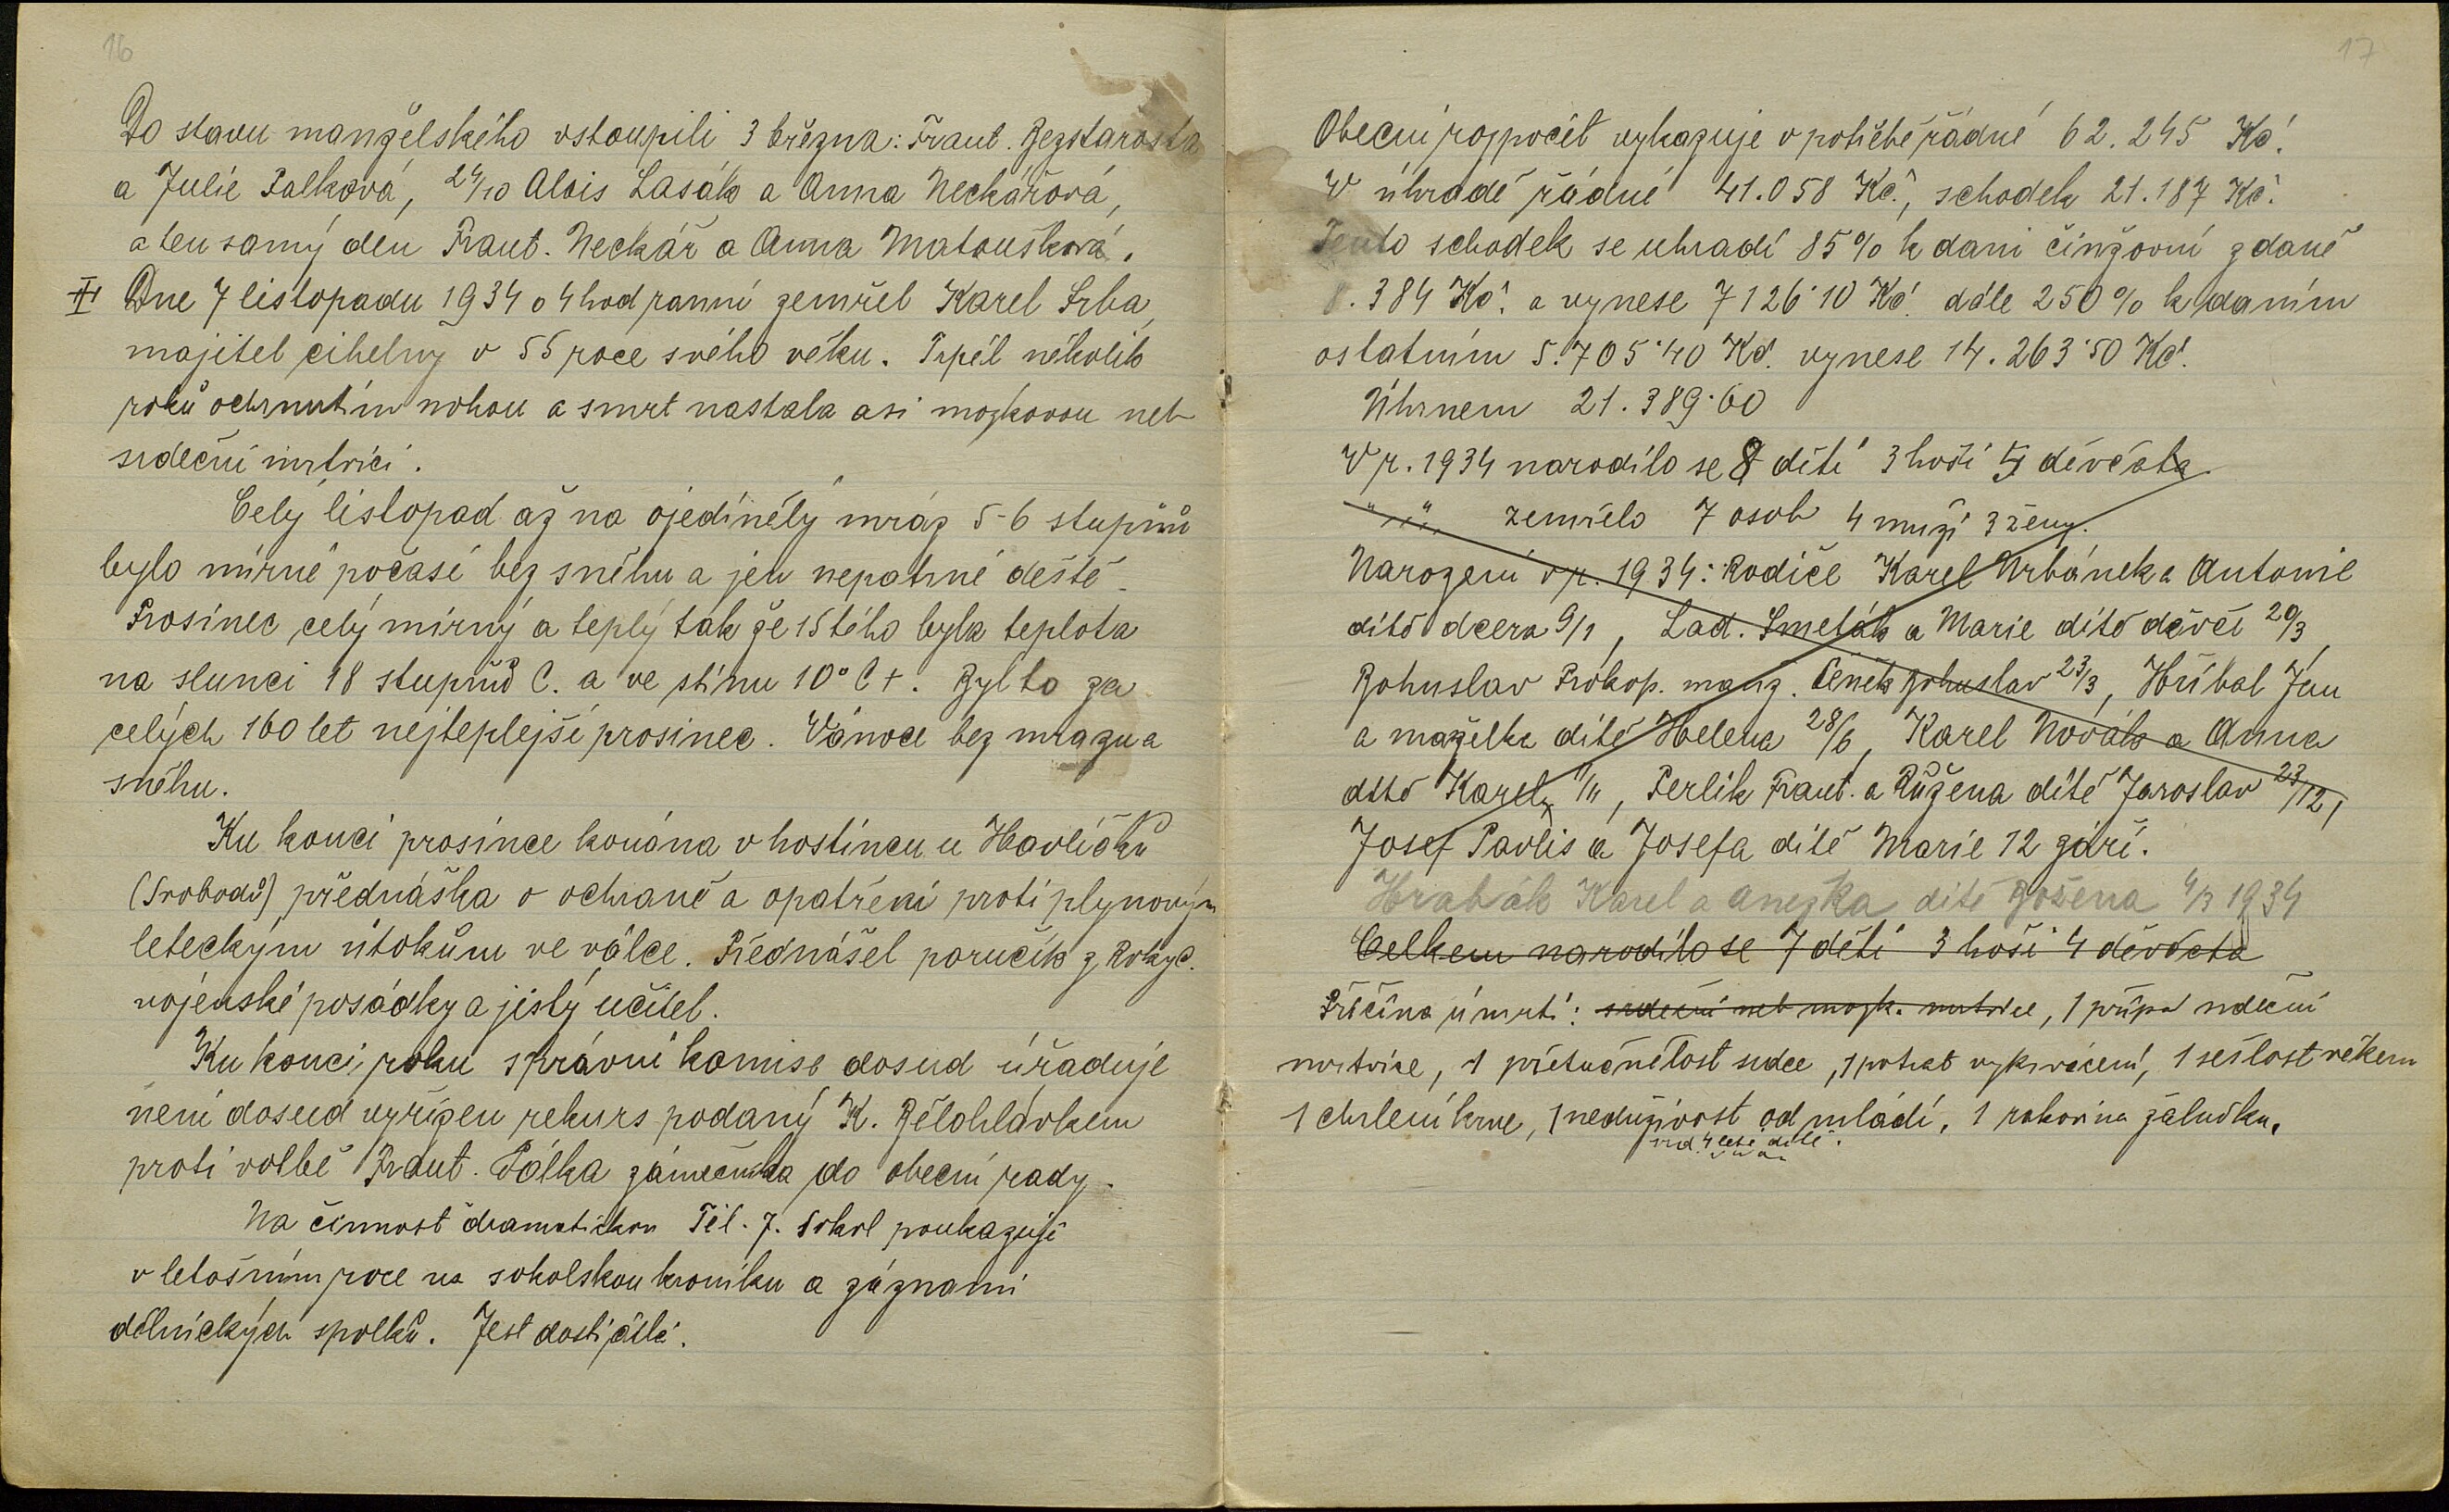 16
Do stavu manželského vstoupili 3 března: Frant. Bezstarosta
a Julie Palková, 24/10 Alois Lasák a Anna Neckářová,
a ten samý den Frant. Neckář a Anna Matoušková.
II Dne 7 listopadu 1934 o 4 hod ranní zemřel Karel Srba,
majitel cihelny v 55 roce svého věku. Trpěl několik
roků ochrnutím nohou a smrt nastala asi mozkovou neb
srdeční mrtvicí.
Celý listopad až na ojedinělý mráz 5-6 stupňů
bylo mírné počasí bez sněhu a jen nepatrné deště.
Prosinec celý mírný a teplý tak že 15tého byla teplota
na slunci 18 stupňů C. a ve stínu 10° C +. Byl to za
celých 160 let nejteplejší prosinec. Vánoce bez mrazu a
sněhu.
Ku konci prosince konána v hostincu u Havlíčků
(Svobodů) přednáška o ochraně a opatření proti plynovým
leteckým útokům ve válce. Přednášel poručík z Rokyc.
vojenské posádky a jistý učitel.
Ku konci roku správní komise dosud úřaduje
není dosud vyřízen rekurs podaný K. Bělohlávkem
proti volbě Frant. Pálka zámečníka do obecní rady.
Na činnost dramatickou Těl. J. Sokol poukazuji
v letošním roce na sokolskou kroniku a záznami
dělnických spolků. Jest dosti čilá.
17
Obecní rozpočet vykazuje v potřebě řádné 62.245 Kč.
V úhradě řádné 41.058 Kč., schodek 21.187 Kč.
Tento schodek se uhradí 85% k dani činžovní z daně
8.384 Kč. a vynese 7126·10 Kč. dále 250% k daním
ostatním 5.705·40 Kč. vynese 14.263·50 Kč.
Úhrnem 21.389·60
V r. 1934 narodilo se 8 dětí 3 hoši 5 děvčata
" " " zemřelo 7 osob 4 muži 3 ženy.
Narozeni v r. 1934: Rodiče Karel Urbánek a Antonie
dítě dcera 9/1, Lad. Smeták a Marie dítě děvče 20/3,
Bohuslav Prokop. manž. Čeněk Bohuslav 23/3, Hříbal Jan
a maželka dítě Helena 28/6, Karel Novák a Anna
dítě Karel 1/11, Perlík Frant. a Růžena dítě Jaroslav 23/12,
Josef Pavlis a Josefa dítě Marie 12 září.
Hrabák Karel a Anežka dítě Božena 4/3 1934
Celkem narodilo se 7 dětí 3 hoši 4 děvčata
Příčina úmrtí: srdeční neb mozk. mrtvice, 1 přípa srdeční
mrtvice, 1 přetučnělost srdce, 1 potrat vykrvácení, 1 sešlost věkem
1 chrlení krve, 1 neduživost od mládí, 1 rakovina žaludku.
4 leté dítě.